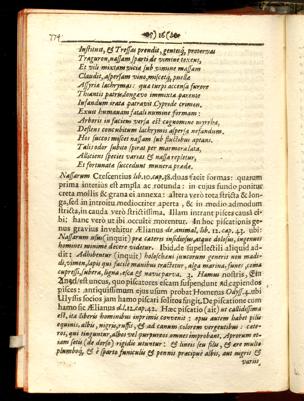 774
16
Institruit, & Tressas prendit, gentesq́; protervas
Traguron, nassam sparti de vimine texens,
Et vili mixtam vicia sub vimine massam
Claudit, aspersam vino, miscetq́; pusilla
Assyria lachrymas: quæ turpi accensa furore
patrio longævo immixta parente
Infandum irata patravit Cypride crimen,
Exuit humanam fatali numine formam:
Arboris in faciem versa est cognomine myrrhæ,
Deflens concubitum lachrymis aspersa nefandum.
Hos succos misces nassam sub fluctibus aptans.
Talis odor subito spirat per marmora lata,
Alliciens species varias & nassa repletur,
Et fortunata succedunt munera præda.
Nassarum Crescentius lib. 10. cap. 38. duas facit formas: quarum
prima initio est ampla ac rotunda: in cujus fundo ponitur
creta mollis & grana ei annexa: altera verò tota stricta & lon-
ga, sed in introitu mediocriter aperta, & in medio admodum
stricta, in cauda verò strictissima. Illam intrant pisces causâ ci-
bi: hanc verò ut ibi occultè morentur. In hoc piscationis ge-
nus gravius invehitur Ælianus de animal. lib. 12. cap. 43. ubi:
Nassarum usus (inquit) præ cæteris insidiosus, atque dolosus, ingenuos
homines minimè decere videtur. Ibid. de supellectili aliquid ad-
dit: Adhibentur (inquit) holoschœni juncorum generis non madi-
di, vimen, lapis qui facilè manibus tractetur, alga marina, suber,
cupressi, subera, ligna, esca & navis parva. 3. Hamus nostris,
est uncus, quo piscatores escam suspendunt ad capiendos
pisces: antiquissimum ejus usum probat Homerus Odyss. 4. ubi
Ulyssis socios jam hamo piscari solitos fingit. De piscatione cum
hamo sic Ælianus d.l. 12. cap. 43. Hæc piscatio (ait) ut callidissima
est, ita liberis hominibus inprimis convenit: opus autem habet pilis
equinis, albis, nigris, ruffis, & ad canum colorem vergentibus: cæte-
ros, qui tinguntur, albos vel purpureos omnes improbant, Aprorum et-
iam setis (de dorso) rigidis utuntur: & lineis seu filis, & ære multo
plumboq́; & è sparto funiculis & pennis præcipuè albis, aut nigris &
variis,